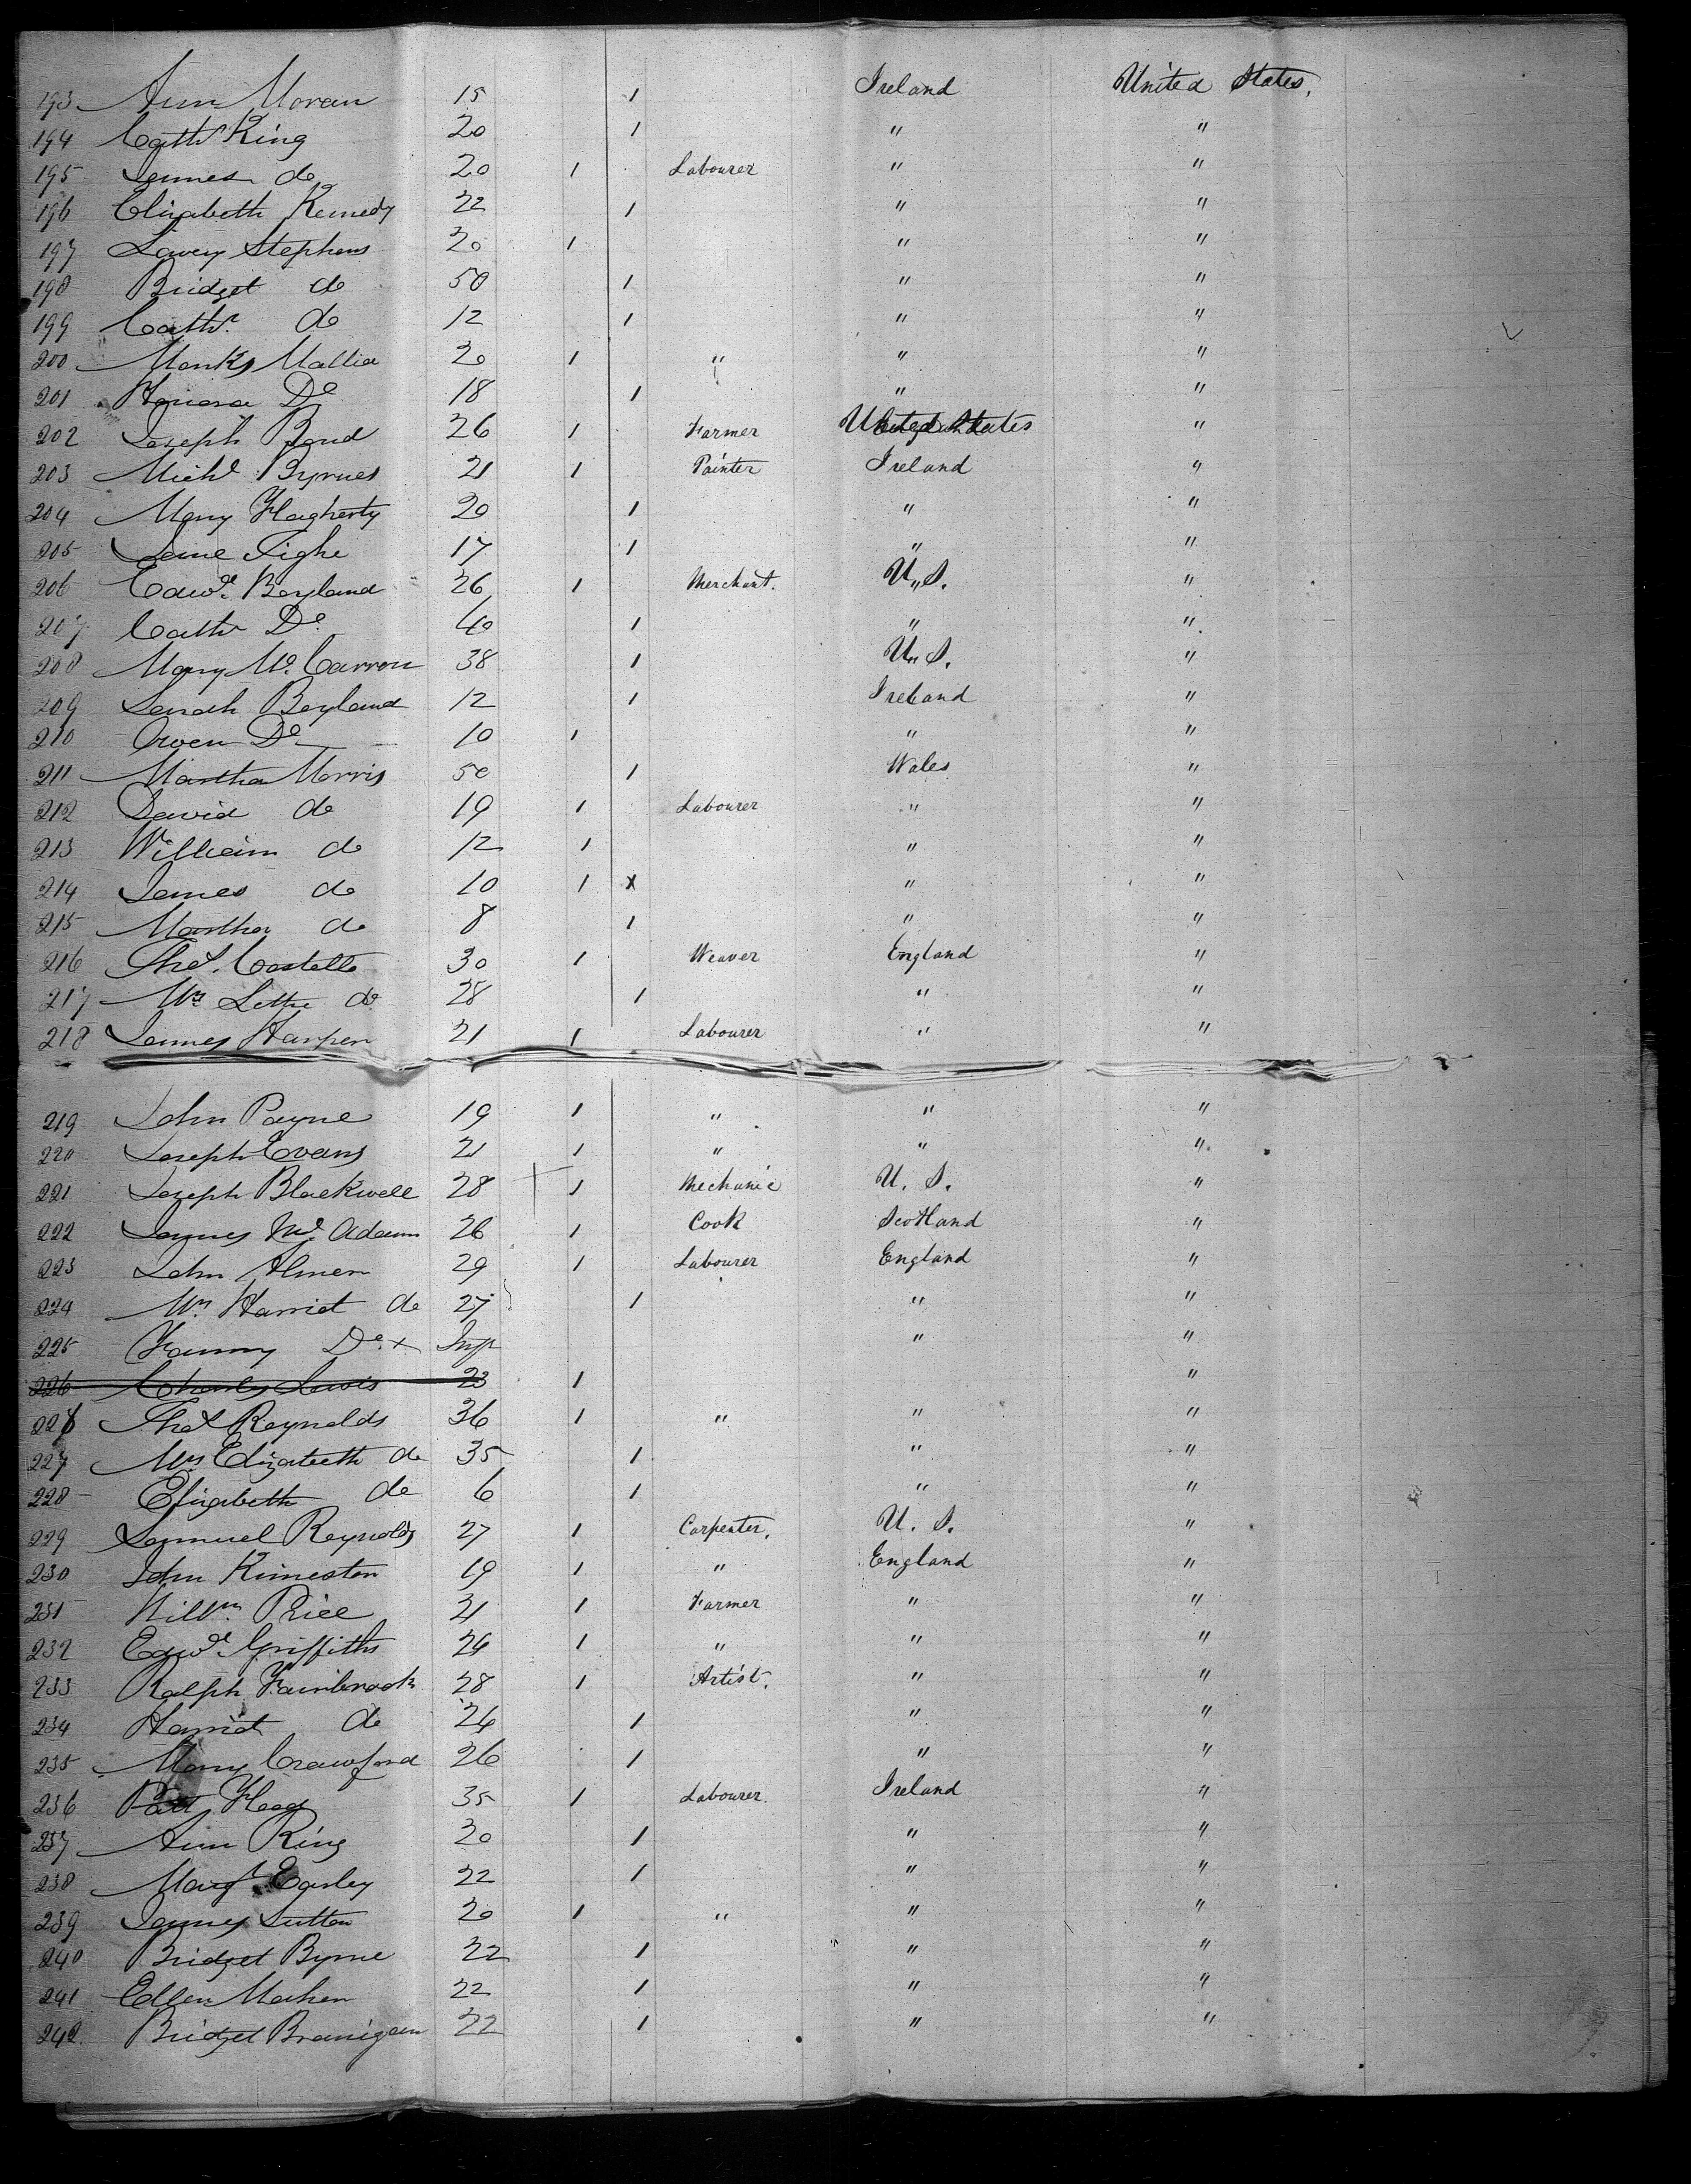 193 Ann Moran 15 1 Ireland United States.
194 Cathe King 20 1 " "
195 James do 20 1 Labourer " "
196 Elizabeth Kennedy 22 1 " "
197 Stephens 20 1 " "
198 Bridget do 50 1 " "
199 Cathe. do 12 1 " "
200 Monks Mallia 20 1 " " "
201 Honora Do 18 1 " "
202 Joseph Bond 26 1 Farmer United States "
203 Michl Byrnes 21 1 Painter Ireland "
204 Mary Flagherty 20 1 " "
205 Jane Tighe 17 1 " "
206 Edwd. Boyland 26 1 Merchant. U,,S. "
207 Cathe Do 40 1 " "
208 Mary Mc. Carron 38 1 U,,S. "
209 Sarah Boyland 12 1 Ireland "
210 Owen Do 10 1 " "
211 Martha Morris 50 1 Wales "
212 David do 19 1 Labourer " "
213 William do 12 1 " "
214 James do 10 1 x " "
215 Martha do 8 1 " "
216 Thos. Costello 30 1 Weaver England "
217 Mrs do 28 1 " "
218 James Harper 21 1 Labourer " "
219 John Payne 19 1 " " "
220 Joseph Evans 21 1 " " "
221 Joseph Blackwell 28 1 Mechanic U. S. "
222 James Mc. Adam 26 1 Cook Scotland "
223 John Almen 29 1 Labourer England "
224 Mrs Harriet do 27 1 " "
225 Fanny Do. x Inft " "
226 Charles Lewis 23 1 "
226 Thos Reynolds 36 1 " " "
227 Mrs Elizabeth do 35 1 " "
228 Elizabeth do 6 1 " "
229 Samuel Reynolds 27 1 Carpenter. U. S. "
230 John Kimeston 19 1 " England "
231 Willm. Price 21 1 Farmer " "
232 Edwd. Griffiths 24 1 " " "
233 Ralph Fairbrook 28 1 Artist. " "
234 Harriet do 24 1 " "
235 Mary Crawford 26 1 " "
236 Patt Flood 35 1 Labourer Ireland "
237 Ann King 20 1 " "
238 Margt Earley 22 1 " "
239 James Sutton 20 1 " " "
240 Bridget Byrne 22 1 " "
241 Ellen Mahen 22 1 " "
242 Bridget Branigan 22 1 " "